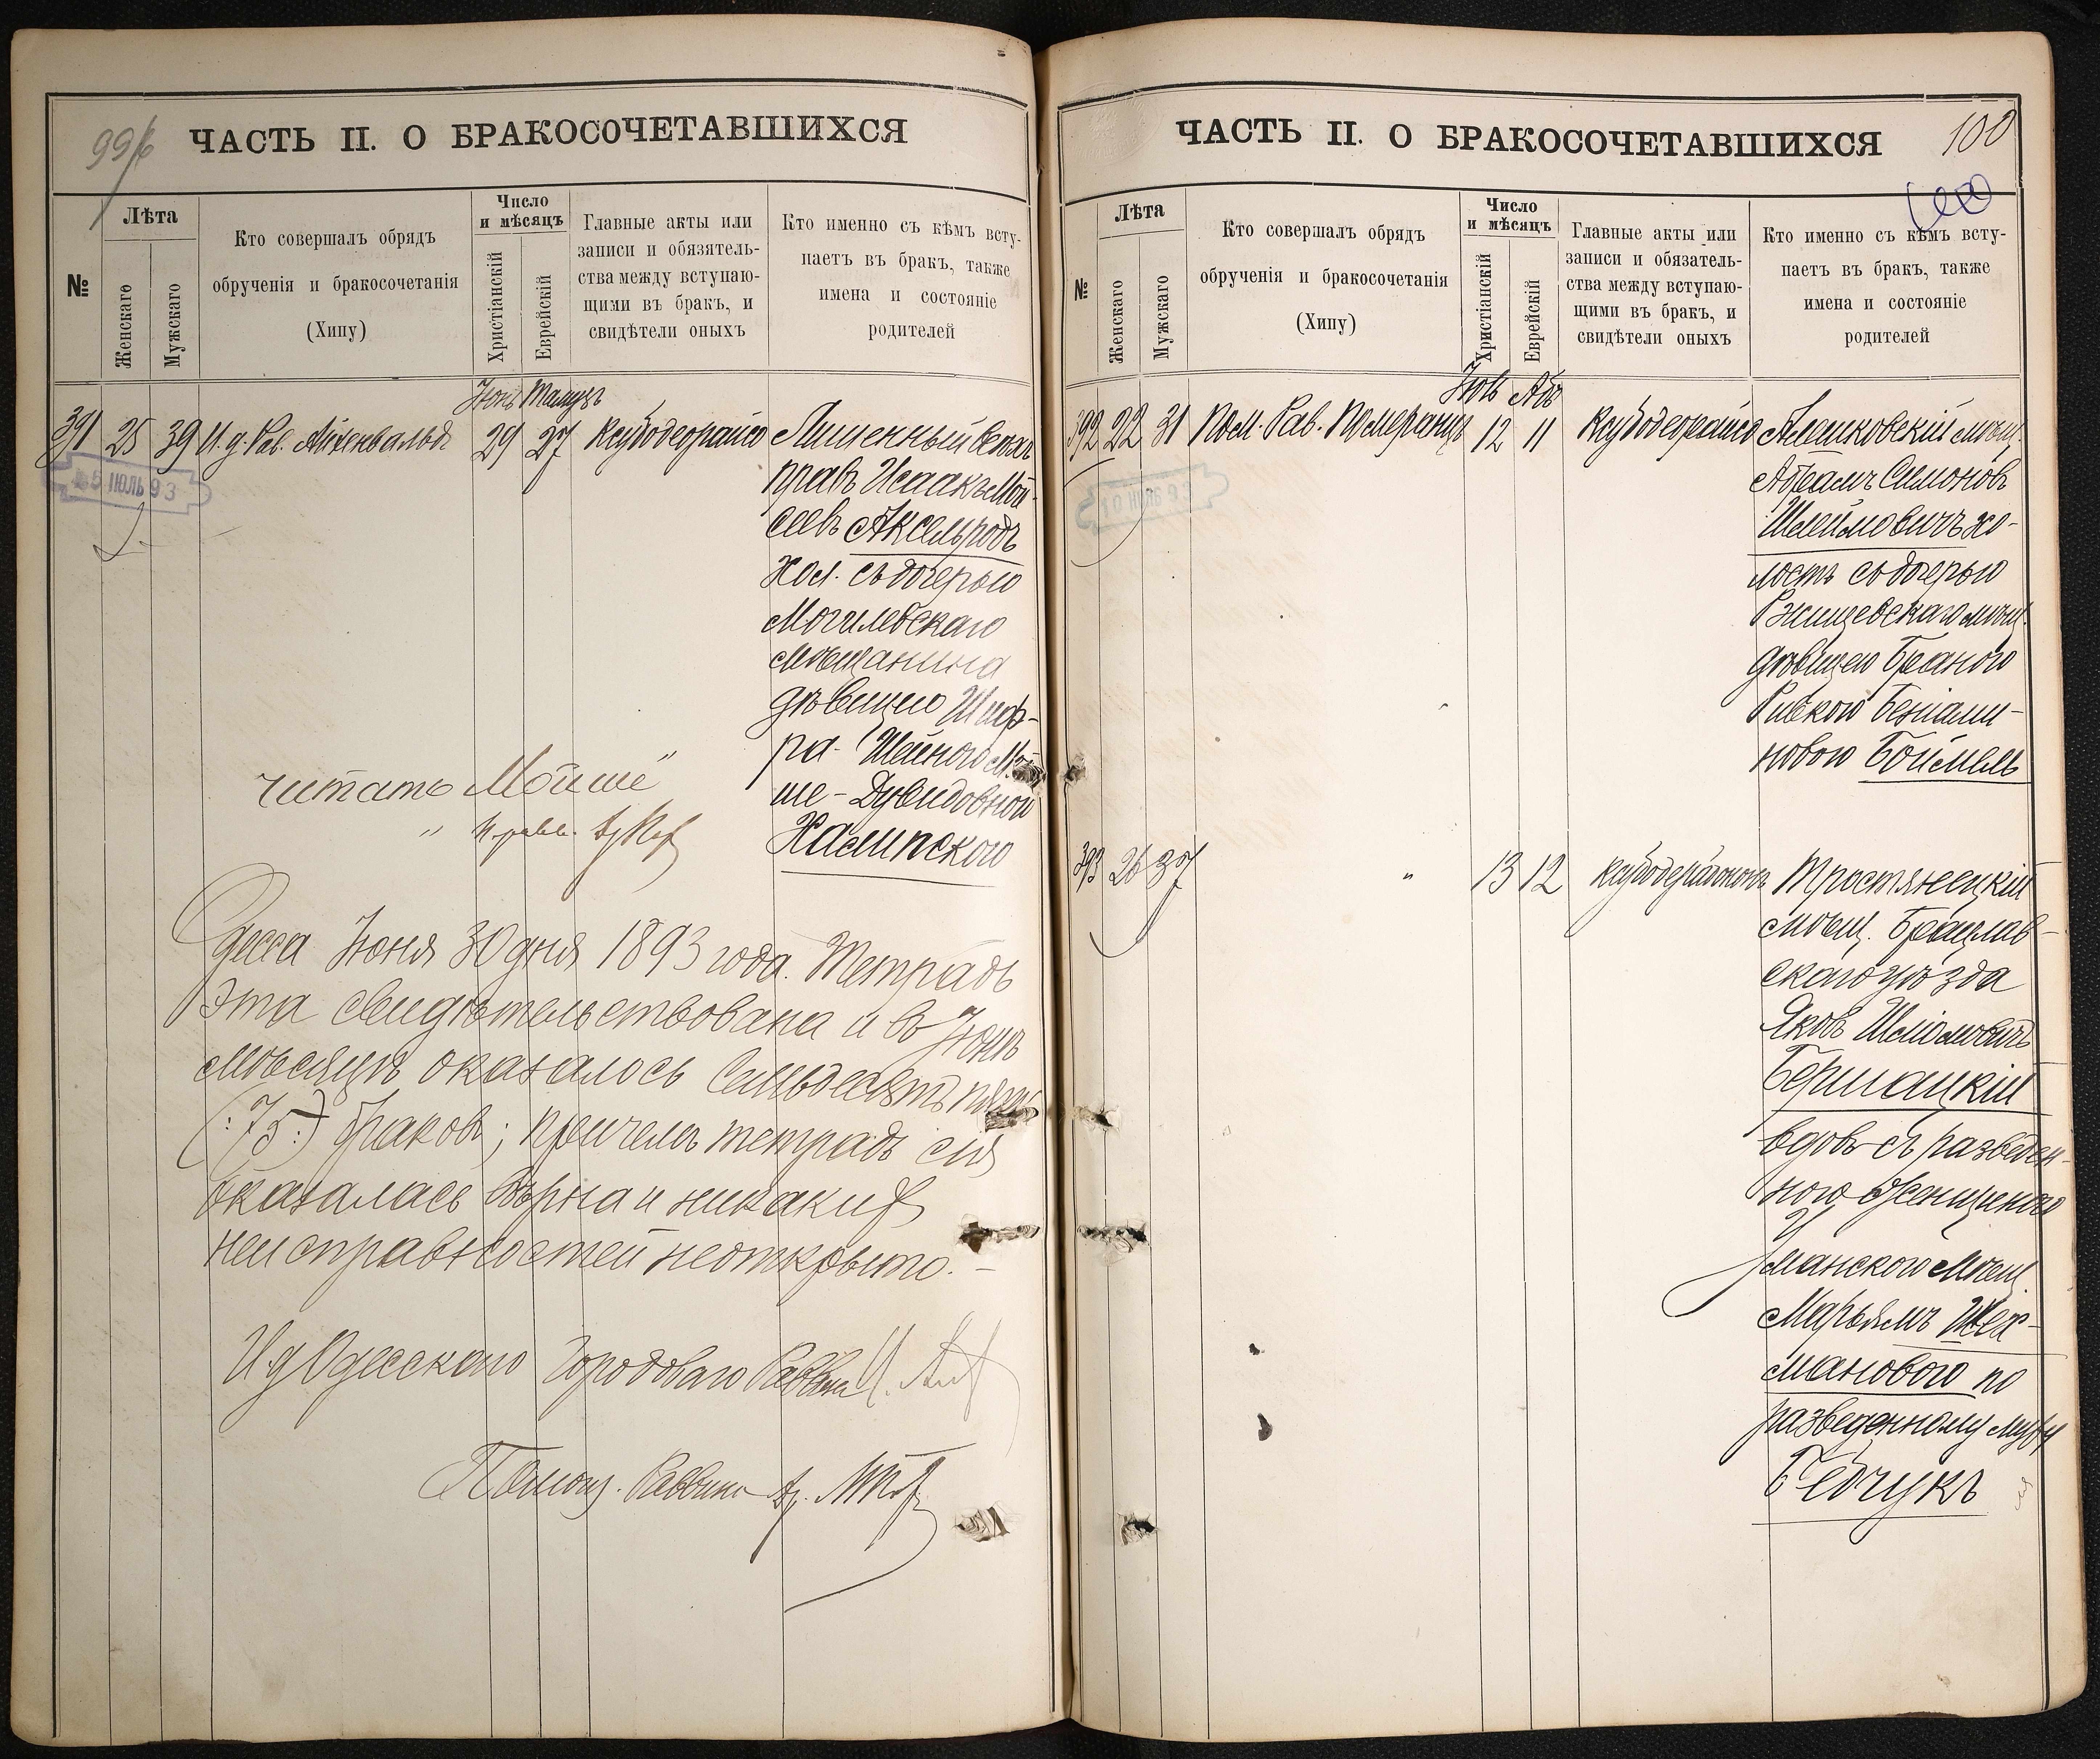 99/б
ЧАСТЬ II. О БРАКОСОЧЕТАВШИХСЯ
№
Лѣта
Женскаго
Мужскаго
Кто совершалъ обрядъ
обрученія и бракосочетанія
(Хипу)
Число
и мѣсяцъ
Христіанскій
Еврейскій
Главные акты или
записи и обязатель-
ства между вступаю-
щими въ бракъ, и
свидѣтели оныхъ
Кто именно съ кѣмъ всту-
паетъ въ бракъ, также
имена и состояніе
родителей
Іюнь Тамузъ
391 25 39 И. д. Рав. Айхенвальдъ 29 27 Ксубодеорайсо Лишенный всѣхъ
правъ Исаакъ Мой-
5 ІЮЛЬ 93
сеевъ Аксельродъ
хол. съ дочерью
Могилевскаго
мѣщанина
дѣвицею Шиф-
ра-Шейною Мой-
ше-Дувидовной
Халипскою
читать „Мойше"
Одесса Іюня 30 дня 1893 года. Тетрадь
эта свидѣтельствована и въ Іюнѣ
мѣсяцѣ оказалось семьдесятъ пять
(:75:) браковъ; причемъ тетрадь сія
оказалась вѣрна и никакихъ
неисправностей не открыто. –
И д Одесскаго Городоваго Раввина
Помощ. Раввина
ЧАСТЬ II. О БРАКОСОЧЕТАВШИХСЯ
100
100
№
Лѣта
Женскаго
Мужскаго
Кто совершалъ обрядъ
обрученія и бракосочетанія
(Хипу)
Число
и мѣсяцъ
Христіанскій
Еврейскій
Главные акты или
записи и обязатель-
ства между вступаю-
щими въ бракъ, и
свидѣтели оныхъ
Кто именно съ кѣмъ всту-
паетъ въ бракъ, также
имена и состояніе
родителей
Іюль Абъ
392 22 31 Пом. Рав. Померанцъ 12 11 Ксубодеорайсо Алешковскій мѣщ.
Абрамъ Симоновъ
Шлеймовичъ хо-
лостъ съ дочерью
Ржищевскаго мѣщ.
дѣвицею Браною
Ривкою Беніами-
новою Боймель
393 26 37 " 13 12 Тростянецкій
мѣщ. Брацлав-
скаго уѣзда
Яковъ Шліомовичъ
Бершацкій
вдовъ съ разведен-
ною женщиною
У
манскою мѣщ
Марьямъ Шех-
мановою по
разведенному мужу